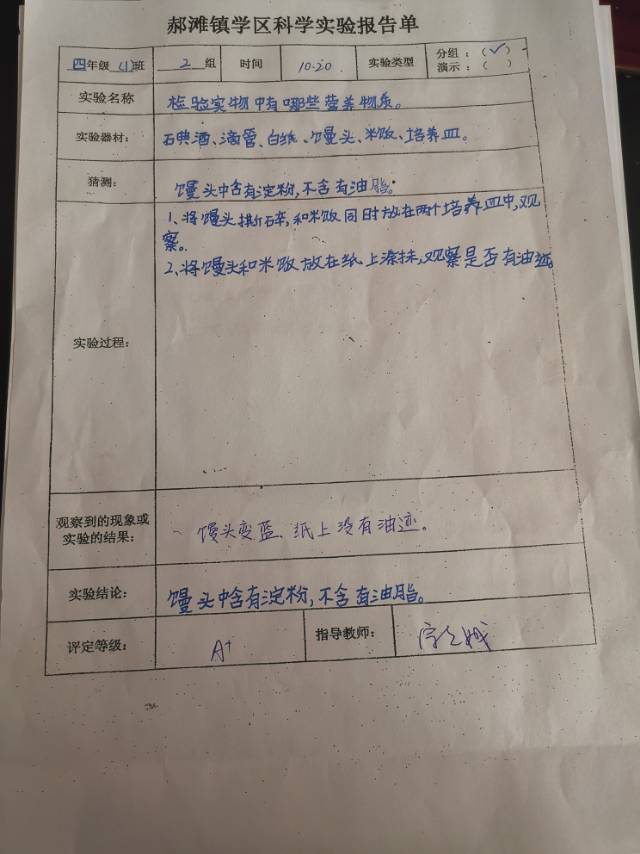 郝滩镇学区科学实验报告单
四年级(1)班 2组 时间 10.20. 实验类型 分组：(✓)
演示：( )
实验名称 检验实物中有哪些营养物质。
实验器材： 石典酒、滴管、白纸、馒头、米饭、培养皿。
猜测： 馒头中含有淀粉,不含有油脂.
1、将馒头撕碎,和米饭同时放在两个培养皿中,观
察。
实验过程： 2、将馒头和米饭放在纸上涂抹,观察是否有油迹。
观察到的现象或
实验的结果： 馒头变蓝、纸上没有油迹。
实验结论： 馒头中含有淀粉,不含有油脂。
评定等级： A+ 指导教师：